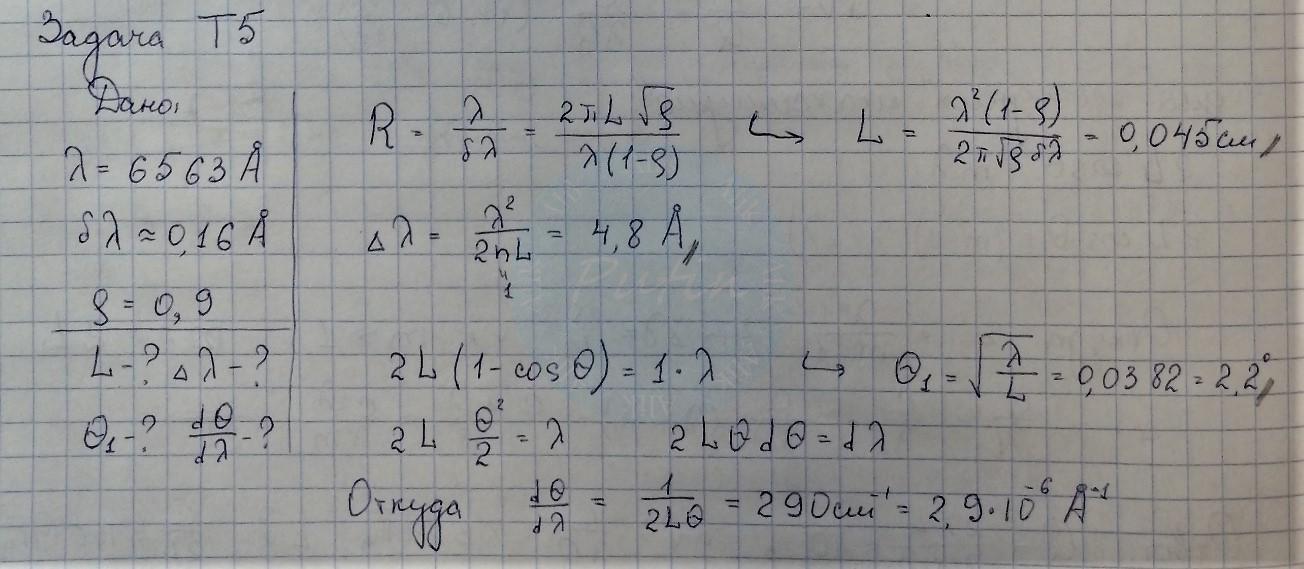 Задача T5
Дано:
λ = 6563 Å
δλ ≈ 0,16 Å
ρ = 0,9
L-? Δλ-?
θ₁-? dθ/dλ-?
R = λ/δλ = 2πL√ρ / λ(1-ρ) ↪ L = λ²(1-ρ) / 2π√ρ δλ = 0,045 см,
Δλ = λ²/2nL = 4,8 Å,
"
1
2L(1-cosθ) = 1·λ ↪ θ₁ = √(λ/L) = 0,0382 = 2,2°,
2L θ²/2 = λ 2Lθdθ = dλ
Откуда dθ/dλ = 1/2Lθ = 290 см⁻¹ = 2,9·10⁻⁶ Å⁻¹